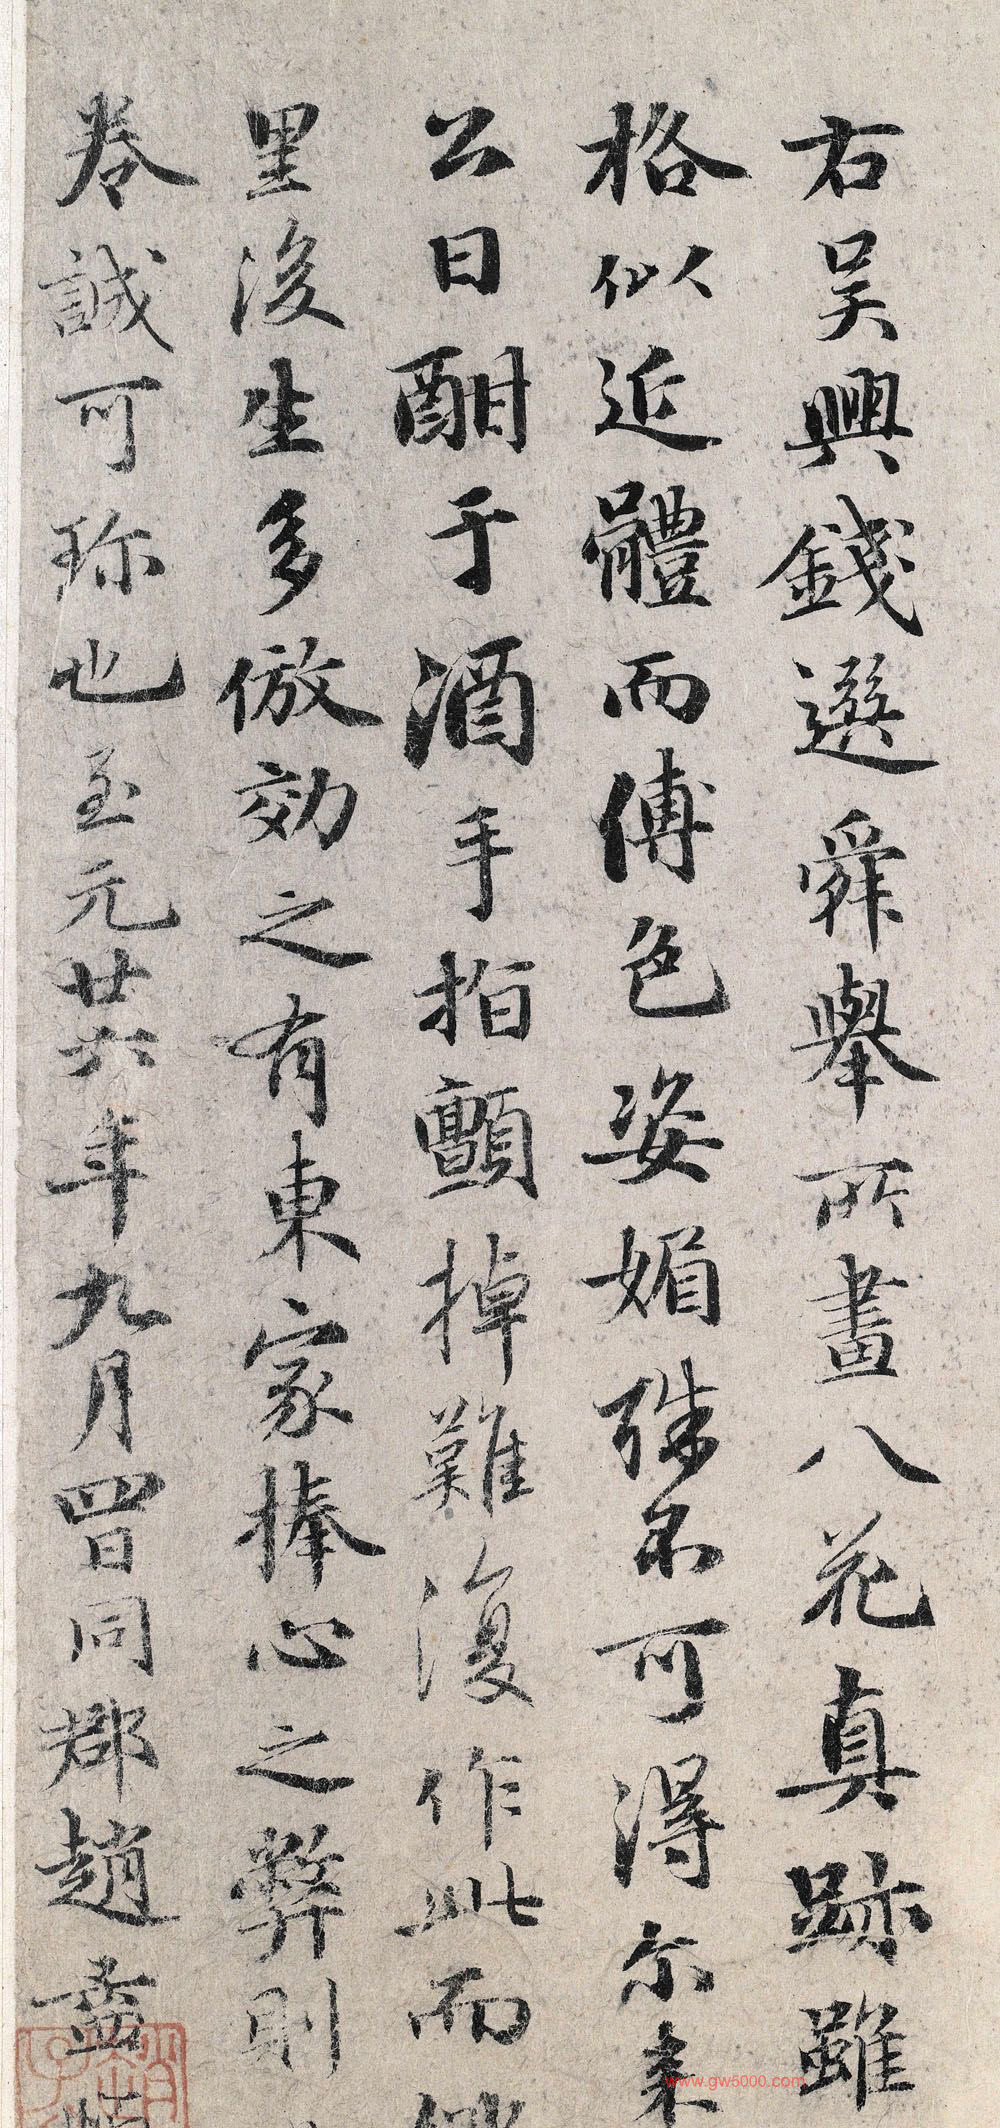 右吳興錢選舜舉所畫八花真跡雖
格似近體而傅色姿媚殊不可得尔来
公日酣于酒手指顫掉難復作此而
里後生多倣効之有東家捧心之弊則
卷誠可珎也至元廿六年九月四日同郡趙孟
www.gw5000.com